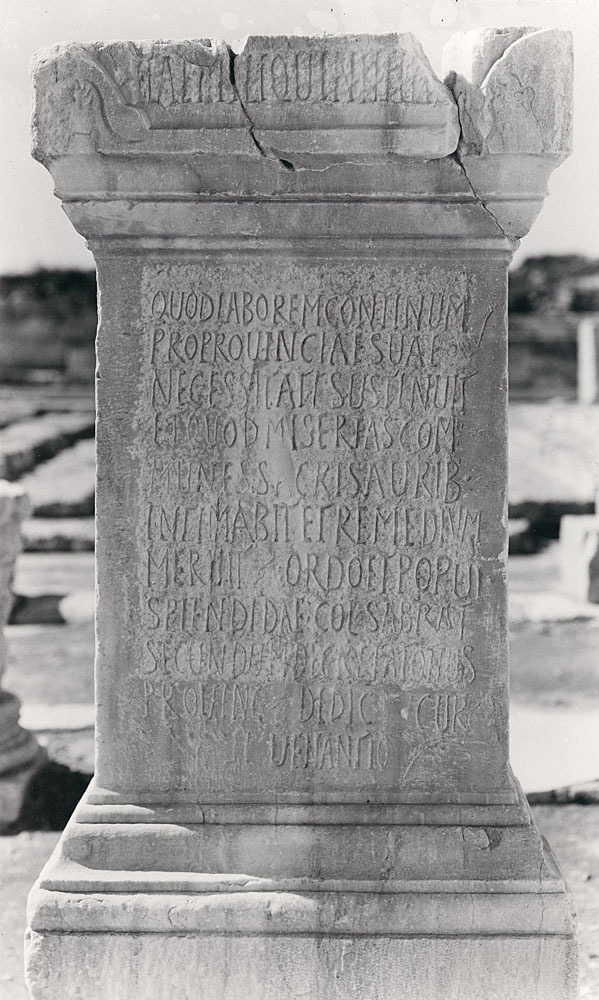 QUOD LABOREM CONTINUM
PRO PROUINCIAE SUAE
NECESSITATE SUSTINUIT
ET QUOD MISERIAS COM
MUNES SACRIS AURIB
INTIMABIT ET REMEDIUM
MERUIT ORDO ET POPUL
SPLENDIDAE COL SABRAT
SECUNDUM DECRETA
PROUINC DEDIC CUR
UENANTIO